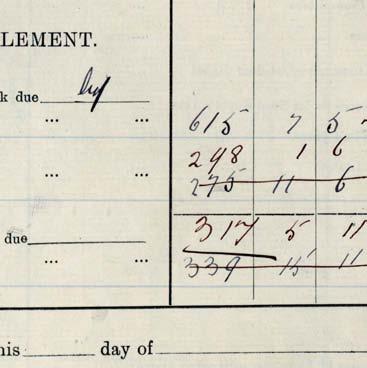 LEMENT.
k due
... ... 615 7 5
298 1 6
... ... 275 11 6
due 317 5 11
... ... 339 15 11
his day of